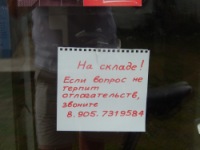 На складе!
Если вопрос не
терпит
отлагательств,
звоните
8.905.7319584